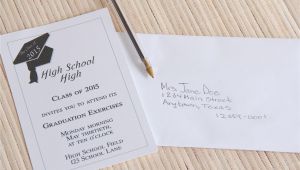 2015
High School
High
Class of 2015
invites you to attend its
Graduation Exercises
Monday morning
May thirtieth,
at ten o'clock
High School Field
123 School Lane
Mrs. Jane Doe
1234 Main Street
Anytown, Texas
12059-0001